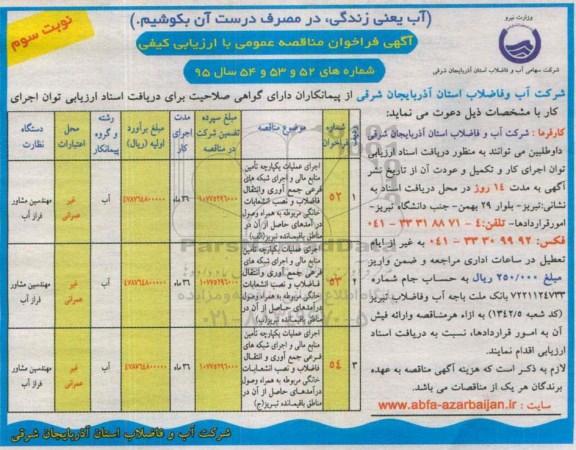 (آب یعنی زندگی، در مصرف درست آن بکوشیم.)
نوبت سوم
آگهی فراخوان مناقصه عمومی با ارزیابی کیفی
شماره های ۵۲ و ۵۳ و ۵۴ سال ۹۵
وزارت نیرو
شرکت سهامی آب و فاضلاب استان آذربایجان شرقی
شرکت آب وفاضلاب استان آذربایجان شرقی از پیمانکاران دارای گواهی صلاحیت برای دریافت اسناد ارزیابی توان اجرای
کار با مشخصات ذیل دعوت می نماید:
کارفرما : شرکت آب و فاضلاب استان آذربایجان شرقی
داوطلبین می توانند به منظور دریافت اسناد ارزیابی
توان اجرای کار و تکمیل و عودت آن از تاریخ نشر
آگهی به مدت ۱۴ روز در محل دریافت اسناد به
نشانی:تبریز- بلوار ۲۹ بهمن- جنب دانشگاه تبریز-
امورقراردادها- تلفن:۴ - ۷۱ ۸۸ ۳۱ ۳۳ - ۰۴۱
فکس: ۹۲ ۹۹ ۳۰ ۳۳ - ۰۴۱ به غیر از ایام
تعطیل در ساعات اداری مراجعه و ضمن واریز
مبلغ ۲۵۰/۰۰۰ ریال به حساب جام شماره
۷۲۲۱۱۲۴۷۳۳ بانک ملت باجه آب وفاضلاب تبریز
(کد شعبه ۱۳۴۲/۵) به ازاء هرمناقصه وارائه فیش
آن به امور قراردادها، نسبت به دریافت اسناد
ارزیابی اقدام نمایند.
لازم به ذکر است که هزینه آگهی مناقصه به عهده
برندگان هر یک از مناقصات می باشد.
سایت : www.abfa-azarbaijan.ir
ردیف | شماره فراخوان | موضوع مناقصه | مبلغ سپرده تضمین شرکت در مناقصه | مدت اجرای کار | مبلغ برآورد اولیه (ریال) | رشته و گروه پیمانکار | محل اعتبارات | دستگاه نظارت
۱ | ۵۲ | اجرای عملیات یکپارچه تأمین منابع مالی و اجرای شبکه های فرعی جمع آوری وانتقال فاضلاب و نصب انشعابات خانگی مربوطه به همراه وصول درآمدهای حاصل از آن در مناطق باقیمانده تبریز(الف) | ۳۶ ماه | آب | غیر عمرانی | مهندسین مشاور فراز آب
۲ | ۵۳ | اجرای عملیات یکپارچه تأمین منابع مالی و اجرای شبکه های فرعی جمع آوری وانتقال فاضلاب و نصب انشعابات خانگی مربوطه به همراه وصول درآمدهای حاصل از آن در مناطق باقیمانده تبریز(ب) | ۳۶ ماه | آب | غیر عمرانی | مهندسین مشاور فراز آب
۳ | ۵۴ | اجرای عملیات یکپارچه تأمین منابع مالی و اجرای شبکه های فرعی جمع آوری و انتقال فاضلاب و نصب انشعابات خانگی مربوطه به همراه وصول درآمدهای حاصل از آن در مناطق باقیمانده تبریز(ج) | ۳۶ ماه | آب | غیر عمرانی | مهندسین مشاور فراز آب
شرکت آب و فاضلاب استان آذربایجان شرقی